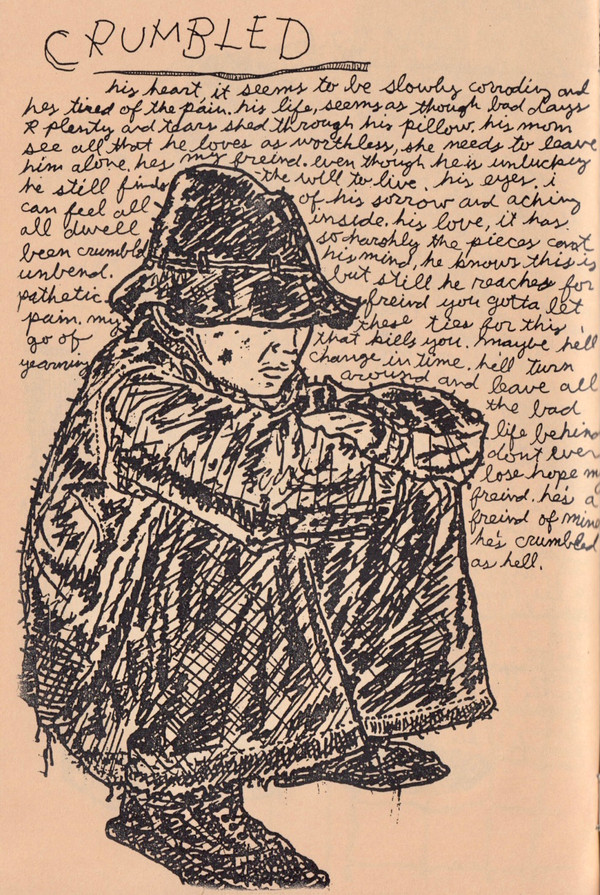 CRUMBLED
his heart, it seems to be slowly corroding and
hes tired of the pain. his life, seems as though bad days
R plenty and tears shed through his pillow. his mom
see all that he loves as worthless, she needs to leave
him alone. hes my freind. even though he is unluckey
he still finds -the will to live. his eyes. i
can feel all of his sorrow and aching
all dwell inside. his love, it has
been crumbld so harshly the pieces cant
unbend. his mind, he knows this is
pathetic. but still he reaches for
pain. my freind you gotta let
go of these ties for this
yearning that kills you. maybe he'll
change in time. he'll turn
around and leave all
the bad
life behind
dont ever
lose hope my
freind. he's a
freind of mine
he's crumbled
as hell.